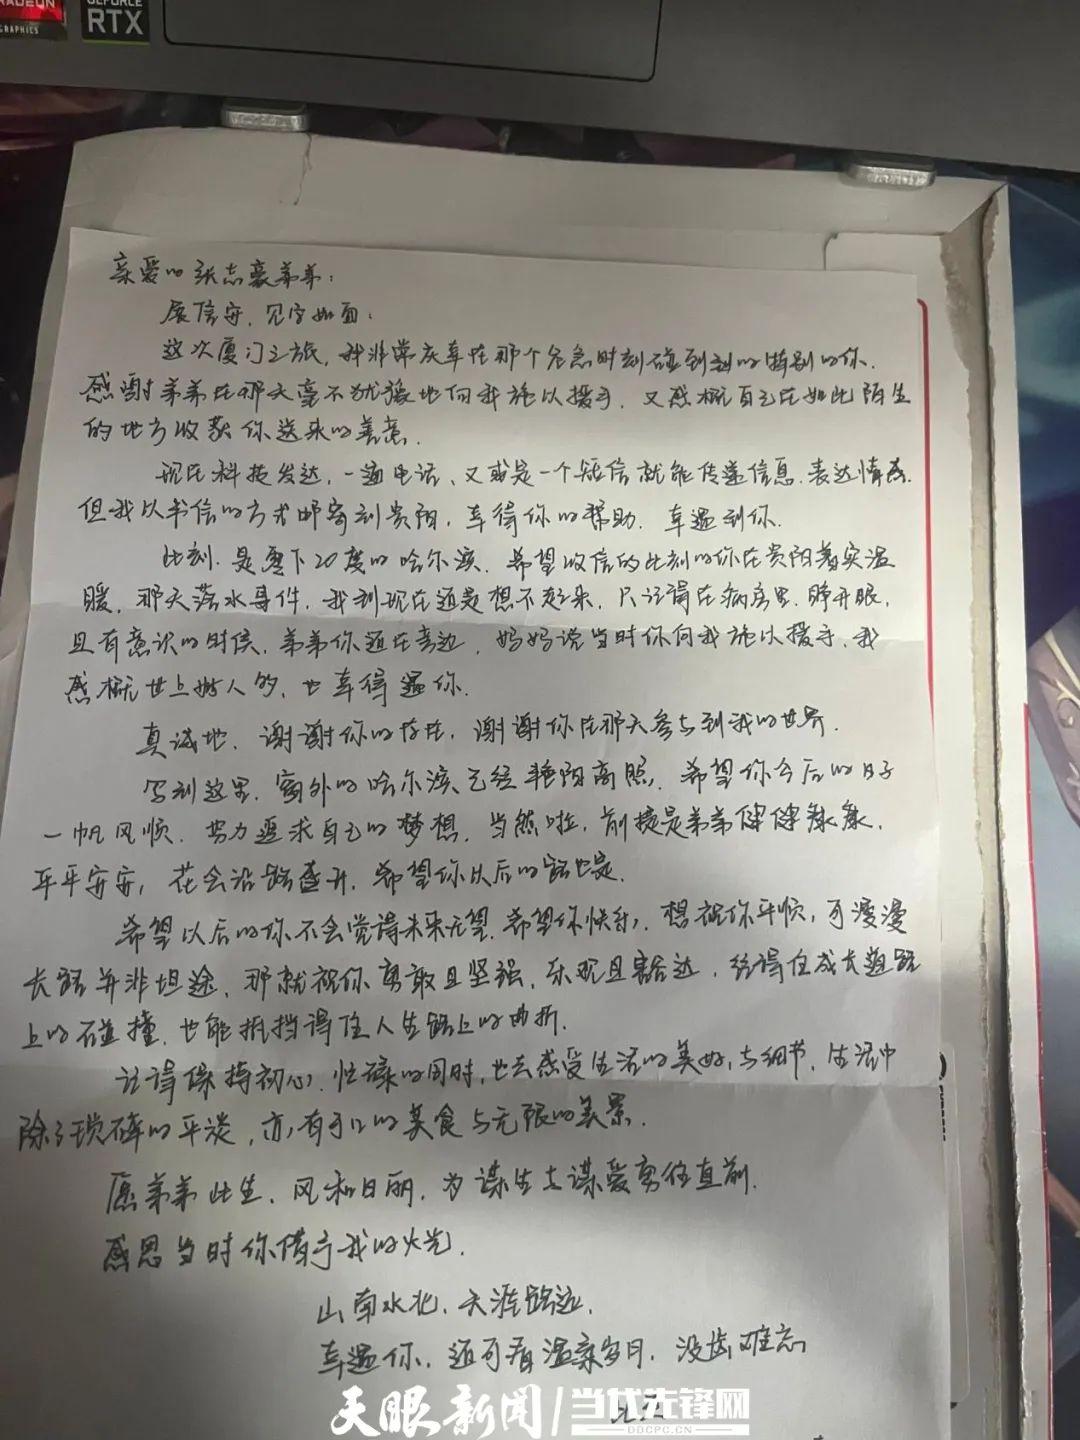 RADEON
GRAPHICS
GEFORCE
RTX
亲爱的张志豪弟弟：
展信安，见字如面：
这次厦门之旅，我非常庆幸在那个危急时刻碰到到的特别的你.
感谢弟弟在那天毫不犹豫地向我施以援手，又感概自己在如此陌生
的地方收获你送来的善意.
现在科技发达，一通电话、又或是一个短信就能传递信息.表达情感.
但我以书信的方式邮寄到贵阳，幸得你的帮助.幸遇到你.
此刻.是零下20度的哈尔滨.希望收信的此刻的你在贵阳着实温
暖，那天落水事件，我到现在还是想不起来，只记得在病房里.睁开眼，
且有意识的时候，弟弟你还在旁边，妈妈说当时你向我施以援手，我
感概世上好人多，也幸得遇你.
真诚地，谢谢你的存在，谢谢你在那天参与到我的世界.
写到这里，窗外的哈尔滨已经艳阳高照，希望你今后的日子
一帆风顺.努力追求自己的梦想，当然啦，前提是弟弟健健康康，
平平安安，花会沿路盛开，希望你以后的路也是.
希望以后的你不会觉得未来无望，希望你快乐，想祝你平顺，可漫漫
长路并非坦途，那就祝你勇敢且坚强，乐观且豁达，经得住成长道路
上的碰撞，也能抵挡得住人生路上的曲折.
记得保持初心，忙碌的同时，也去感受生活的美好与细节，生活中
除了琐碎的平淡，亦有可口的美食与无限的美景.
愿弟弟此生，风和日丽，为谋生去谋爱勇往直前.
感恩当时你借予我的火光.
山南水北，天涯路远.
幸遇你，还可看温柔岁月，没齿难忘
天眼新闻/当代先锋网
DDCPC.CN